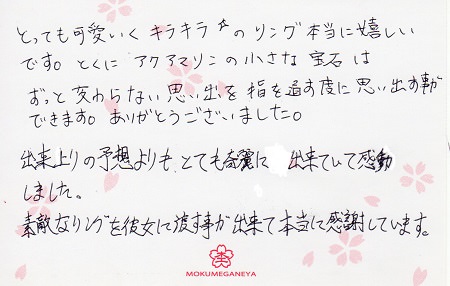 とっても可愛いく キラキラ☆のリング本当に嬉しい
です。とくに アクアマリンの小さな 宝石 は
ずっと変わらない思い出を 指を通す度に思い出す事が
できます。ありがとうございました。
出来上りの予想よりも、とても綺麗に 出来ていて感動
しました。
素敵なリングを彼女に渡す事が出来て本当に感謝しています。
MOKUMEGANEYA